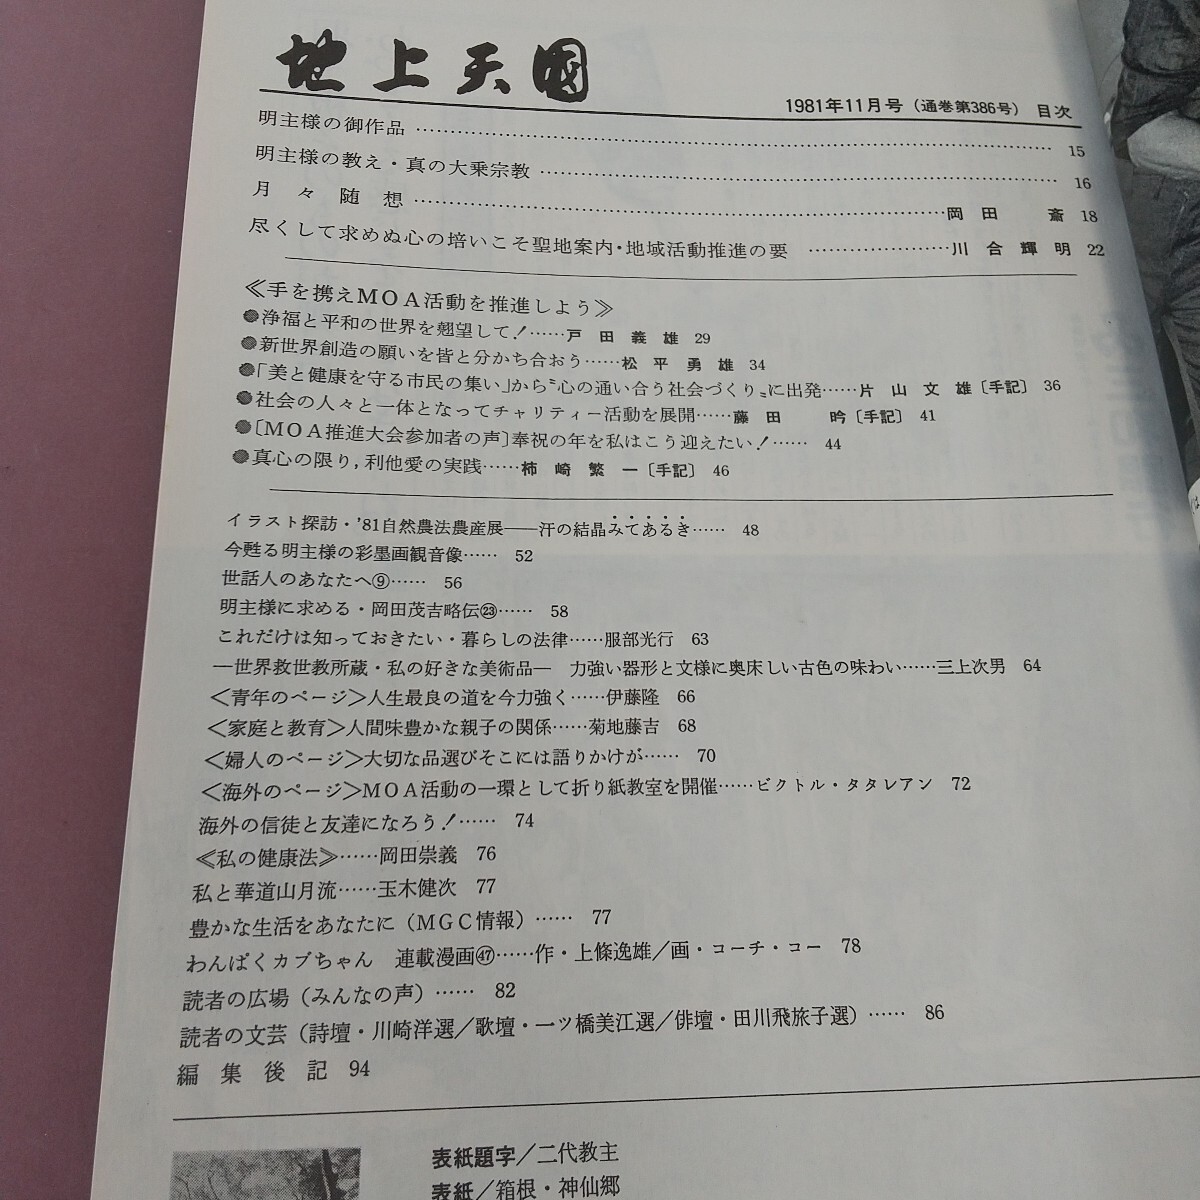 地上天国
1981年11月号（通巻第386号） 目次
明主様の御作品 …… 15
明主様の教え・真の大乗宗教 …… 16
月々随想 …… 岡田 斎 18
尽くして求めぬ心の培いこそ聖地案内・地域活動推進の要 …… 川合輝明 22
≪手を携えMOA活動を推進しよう≫
●浄福と平和の世界を翹望して！……戸田義雄 29
●新世界創造の願いを皆と分かち合おう……松平勇雄 34
●「美と健康を守る市民の集い」から〝心の通い合う社会づくり〟に出発……片山文雄〔手記〕 36
●社会の人々と一体となってチャリティー活動を展開……藤田 昑〔手記〕 41
●〔MOA推進大会参加者の声〕奉祝の年を私はこう迎えたい！…… 44
●真心の限り，利他愛の実践……柿崎繁一〔手記〕 46
イラスト探訪・'81自然農法農産展――汗の結晶みてあるき…… 48
今甦る明主様の彩墨画観音像…… 52
世話人のあなたへ⑨…… 56
明主様に求める・岡田茂吉略伝㉓…… 58
これだけは知っておきたい・暮らしの法律……服部光行 63
―世界救世教所蔵・私の好きな美術品― 力強い器形と文様に奥床しい古色の味わい……三上次男 64
＜青年のページ＞人生最良の道を今力強く……伊藤隆 66
＜家庭と教育＞人間味豊かな親子の関係……菊地藤吉 68
＜婦人のページ＞大切な品選びそこには語りかけが…… 70
＜海外のページ＞MOA活動の一環として折り紙教室を開催……ビクトル・タタレアン 72
海外の信徒と友達になろう！…… 74
≪私の健康法≫……岡田崇義 76
私と華道山月流……玉木健次 77
豊かな生活をあなたに（MGC情報）…… 77
わんぱくカブちゃん 連載漫画㊼……作・上條逸雄／画・コーチ・コー 78
読者の広場（みんなの声）…… 82
読者の文芸（詩壇・川崎洋選／歌壇・一ツ橋美江選／俳壇・田川飛旅子選）…… 86
編集後記 94
表紙題字／二代教主
表紙／箱根・神仙郷